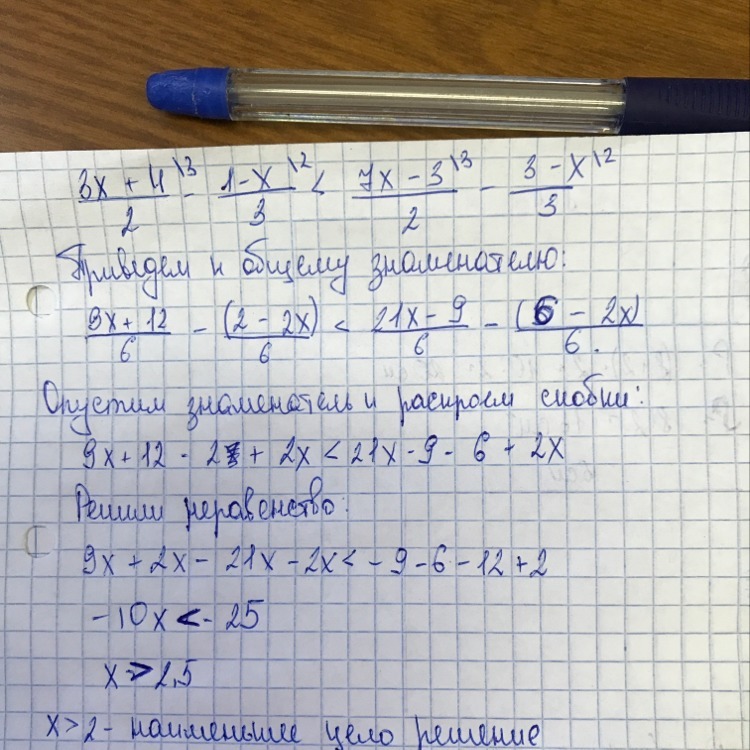 3x + 4\3/2 - 1-x\2/3 < 7x - 3\3/2 - 3-x\2/3
Приведем к общему знаменателю:
9x + 12/6 - (2 - 2x)/6 < 21x - 9/6 - (6 - 2x)/6.
Опустим знаменатель и раскроем скобки:
9x + 12 - 2 + 2x < 21x - 9 - 6 + 2x
Решим неравенство:
9x + 2x - 21x - 2x < - 9 - 6 - 12 + 2
-10x < - 25
x > 2,5
x > 2 - наименьшее цело решение